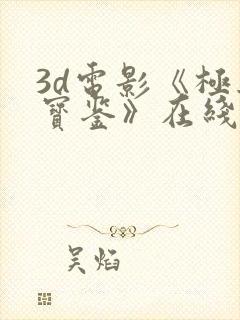 3d電影《極
寶鉴》在綫
吴焰